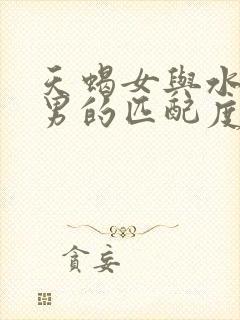 天蝎女與水
男的匹配度
貪妄